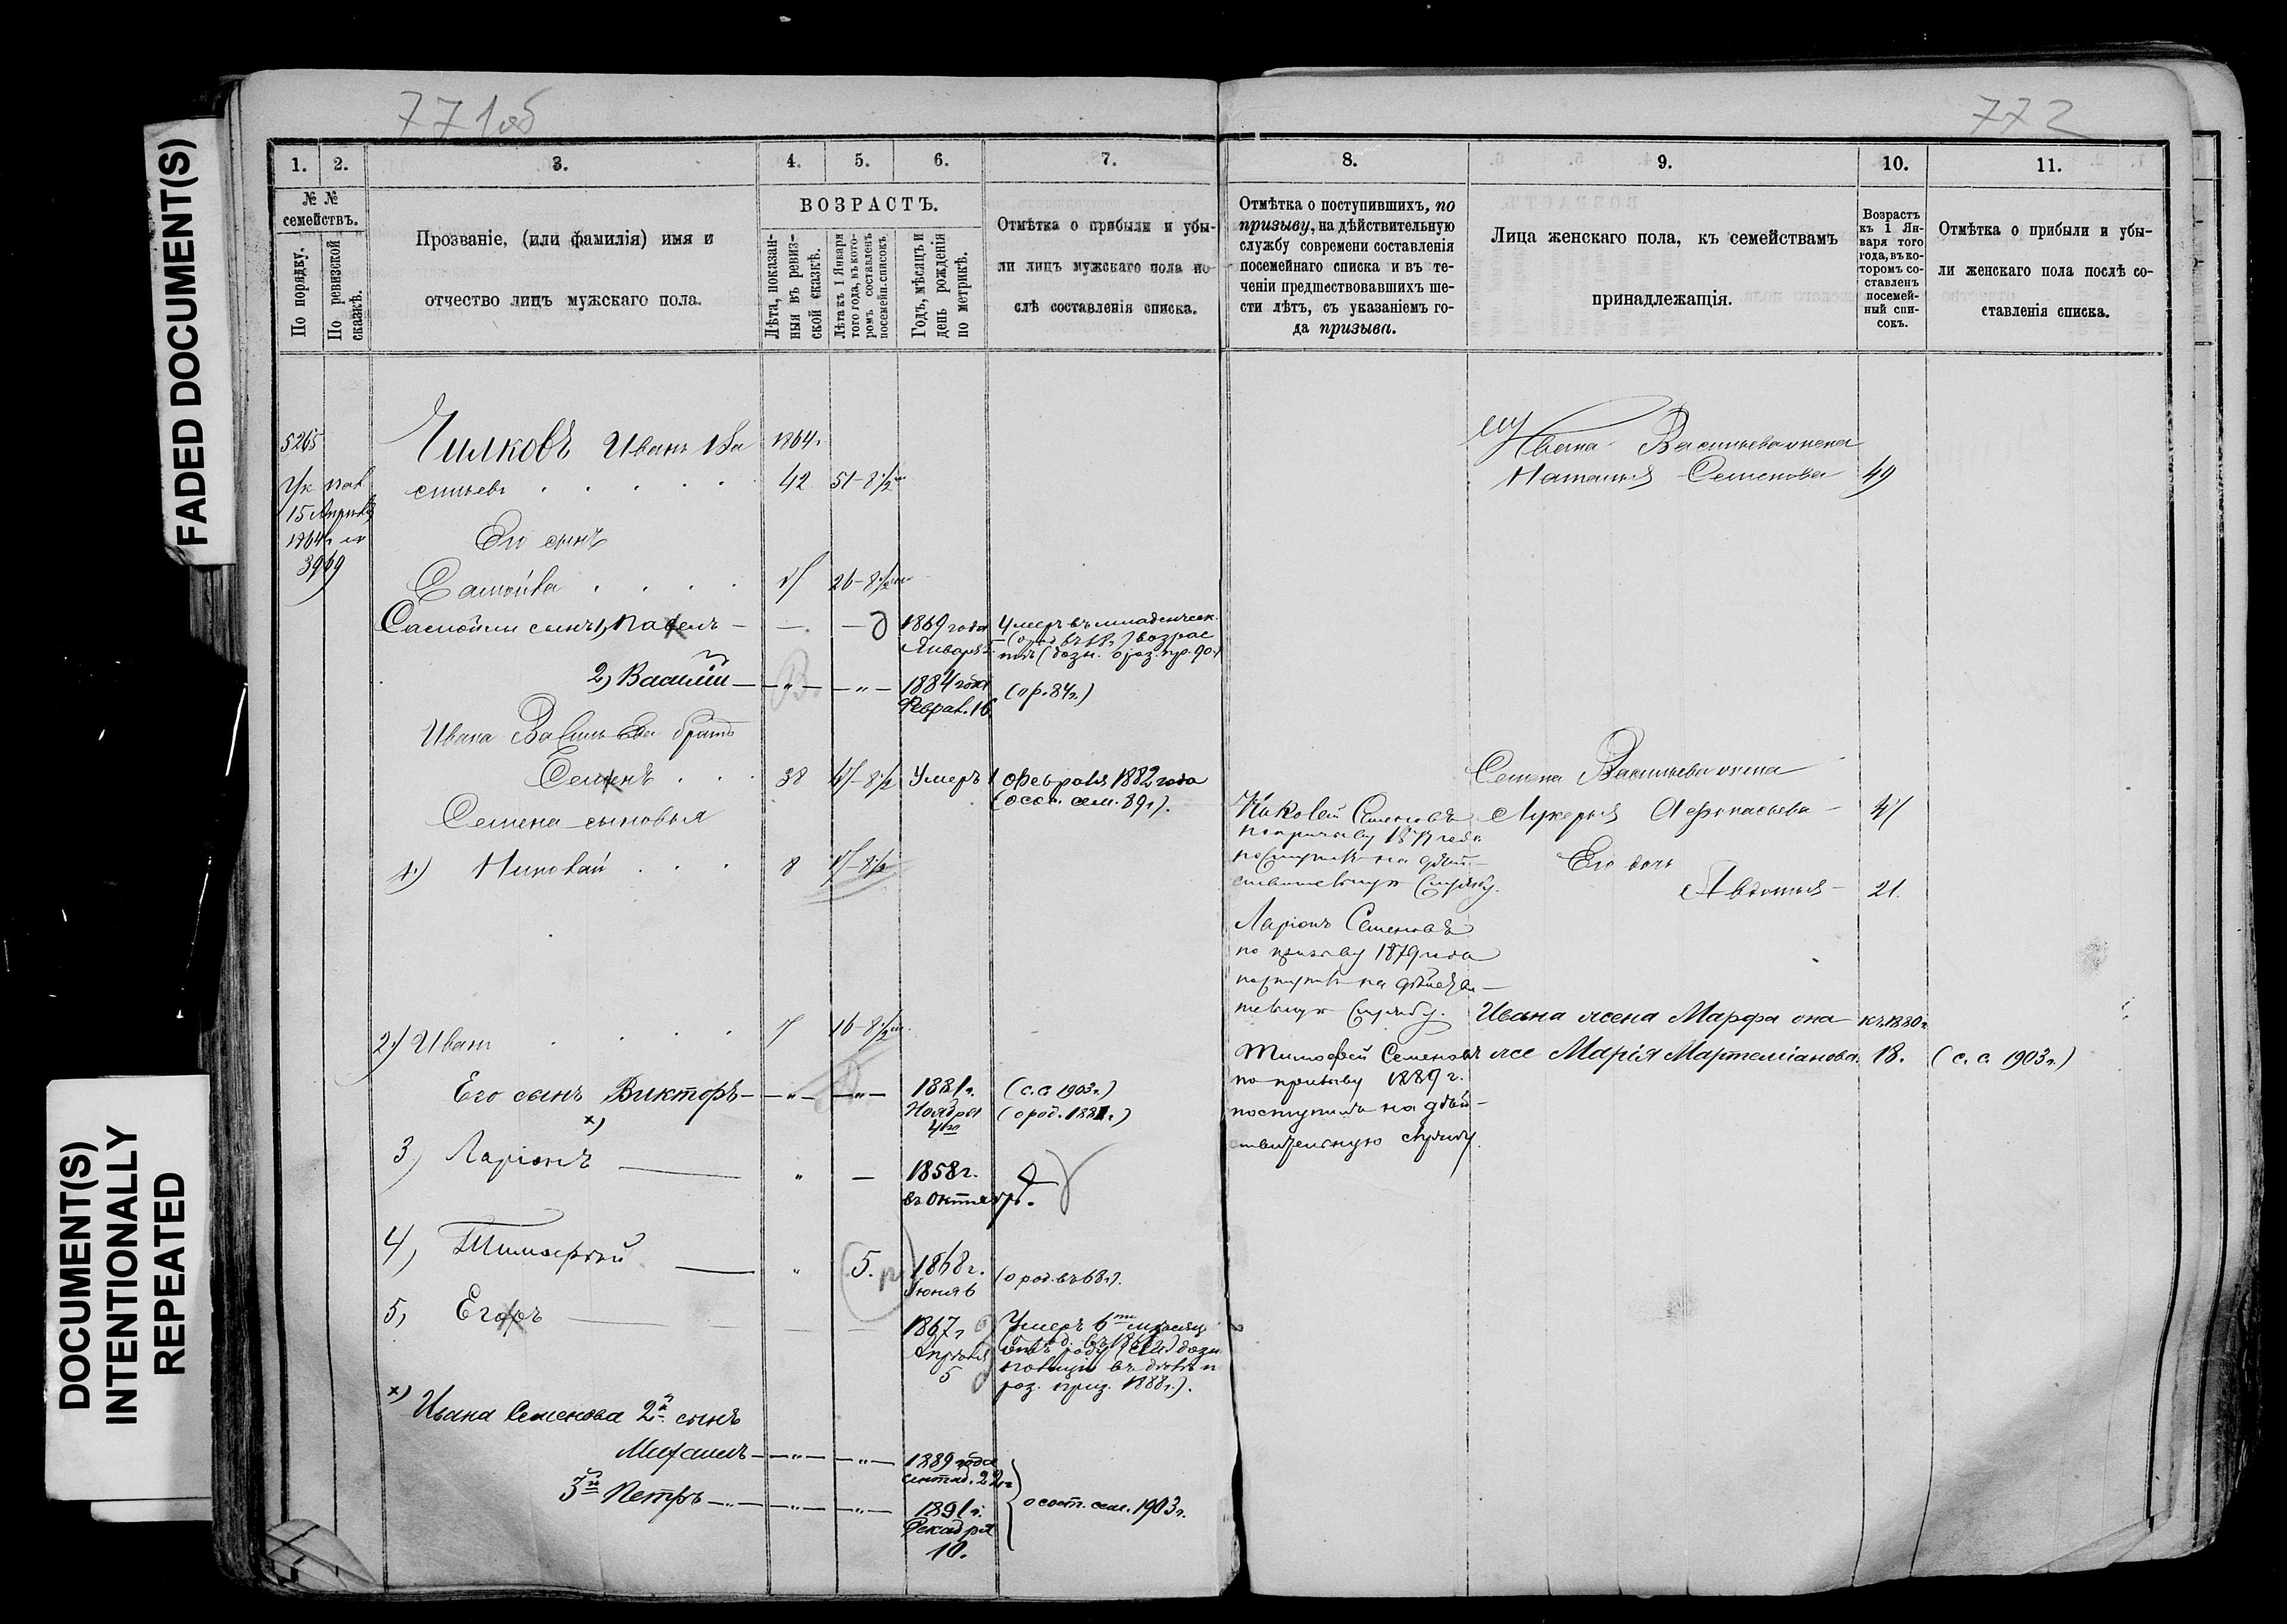 771об
772
FADED DOCUMENT(S)
DOCUMENT(S)
INTENTIONALLY
REPEATED
1.
2.
3.
4.
5.
6.
7.
№ №
семействъ.
По порядку.
По ревизской
сказкѣ.
Прозваніе, (или фамилія) имя и
отчество лицъ мужскаго пола.
ВОЗРАСТЪ.
Лѣта, показан-
ныя въ ревиз-
ской сказкѣ.
Лѣта къ 1 Января
того года, въ кото-
ромъ составленъ
посемейн. списокъ.
Годъ, мѣсяцъ и
день рожденія
по метрикѣ.
Отмѣтка о прибыли и убы-
ли лицъ мужскаго пола по-
слѣ составленія списка.
5265
Чилковъ Иванъ Ва
1864.
15 Апрѣля
1864
3969
сильевъ
42
51-8½
Его сынъ
Самойла
26-8½
Самойлы сынъ 1, Павелъ
1869 года
Января
Умеръ въ младенческ.
возрас
2) Василій
1884 года
Феврал. 16
(о р. 84г.)
Ивана Васильева братъ
Семенъ
38
47-8½
Умеръ 1 Февраля 1882 года
(осот. сем. 89г.).
Семена сыновья
1.) Николай
8
17-8½
2.) Иванъ
7
16-8½
Его сынъ Викторъ
1881г.
Ноября
(с. с. 1903г.)
(о род. 1881г.)
х)
3) Ларіонъ
1858г.
въ Октябрѣ.
4) Тимофѣй
5.
1868г.
Іюня 6
(о род. въ 68г.).
5, Егоръ
1867г.
Апрѣля
5
Умеръ 6 мѣсяц
роз. приз. 1888г.).
х) Ивана Семенова 2й сынъ
Михаилъ
1889 года
сентяб. 22
3й Петръ
1891г.
Декабря
10.
о сост. сем. 1903г.
8.
9.
10.
11.
Отмѣтка о поступившихъ, по
призыву, на дѣйствительную
службу современи составленія
посемейнаго списка и въ те-
ченіи предшествовавшихъ ше-
сти лѣтъ, съ указаніемъ го-
да призыва.
Лица женскаго пола, къ семействамъ
принадлежащія.
Возрастъ
къ 1 Ян-
варя того
года, въ ко-
торомъ со-
ставленъ
посемей-
ный спи-
сокъ.
Отмѣтка о прибыли и убы-
ли женскаго пола послѣ со-
ставленія списка.
Ивана Васильева жена
Наталья Семенова
49
Семена Васильева жена
Лукерья Афонасьева
47
Его дочь
Авдотья
21.
Николай Семеновъ
по призыву 1877 года
поступилъ на дѣй-
ствительную службу.
Ларіонъ Семеновъ
по призыву 1879 года
поступилъ на дѣйстви-
тельную службу.
Ивана жена Марфа она
къ 1880г.
же Марія Мартеміанова.
18.
(с. с. 1903г.)
Тимофей Семеновъ
по призыву 1889 г.
поступилъ на дѣй-
ствительную службу.